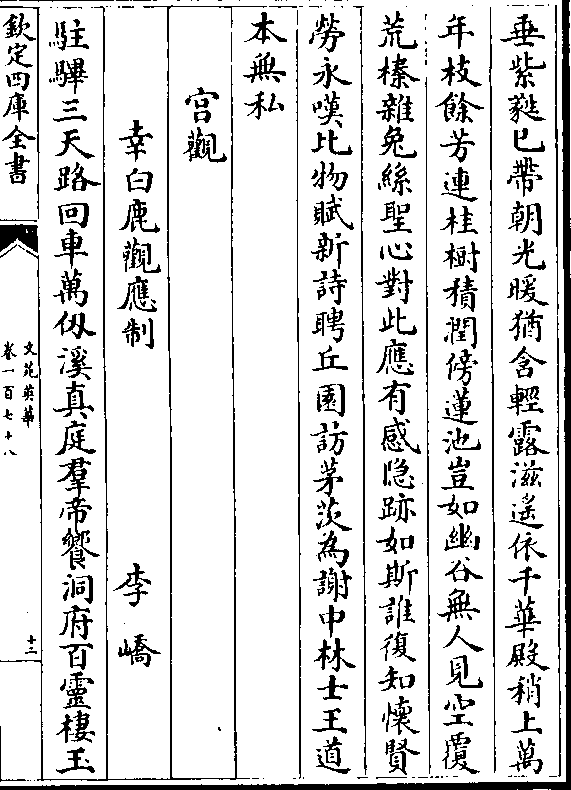 垂紫蕤已帶朝光暖猶含輕露滋遙依千華殿稍上萬
年枝餘芳連桂樹積潤傍蓮池豈如幽谷無人見空覆
荒榛雜兔絲聖心對此應有感隐跡如斯誰復知懷賢
勞永嘆比物賦新詩聘丘園訪茅茨為謝中林士王道
本無私
宫觀
幸白鹿觀應制 李嶠
駐驆三天路回車萬仭溪真庭羣帝饗洞府百靈棲玉
欽定四庫全書
文苑英華
卷一百七十八
十二